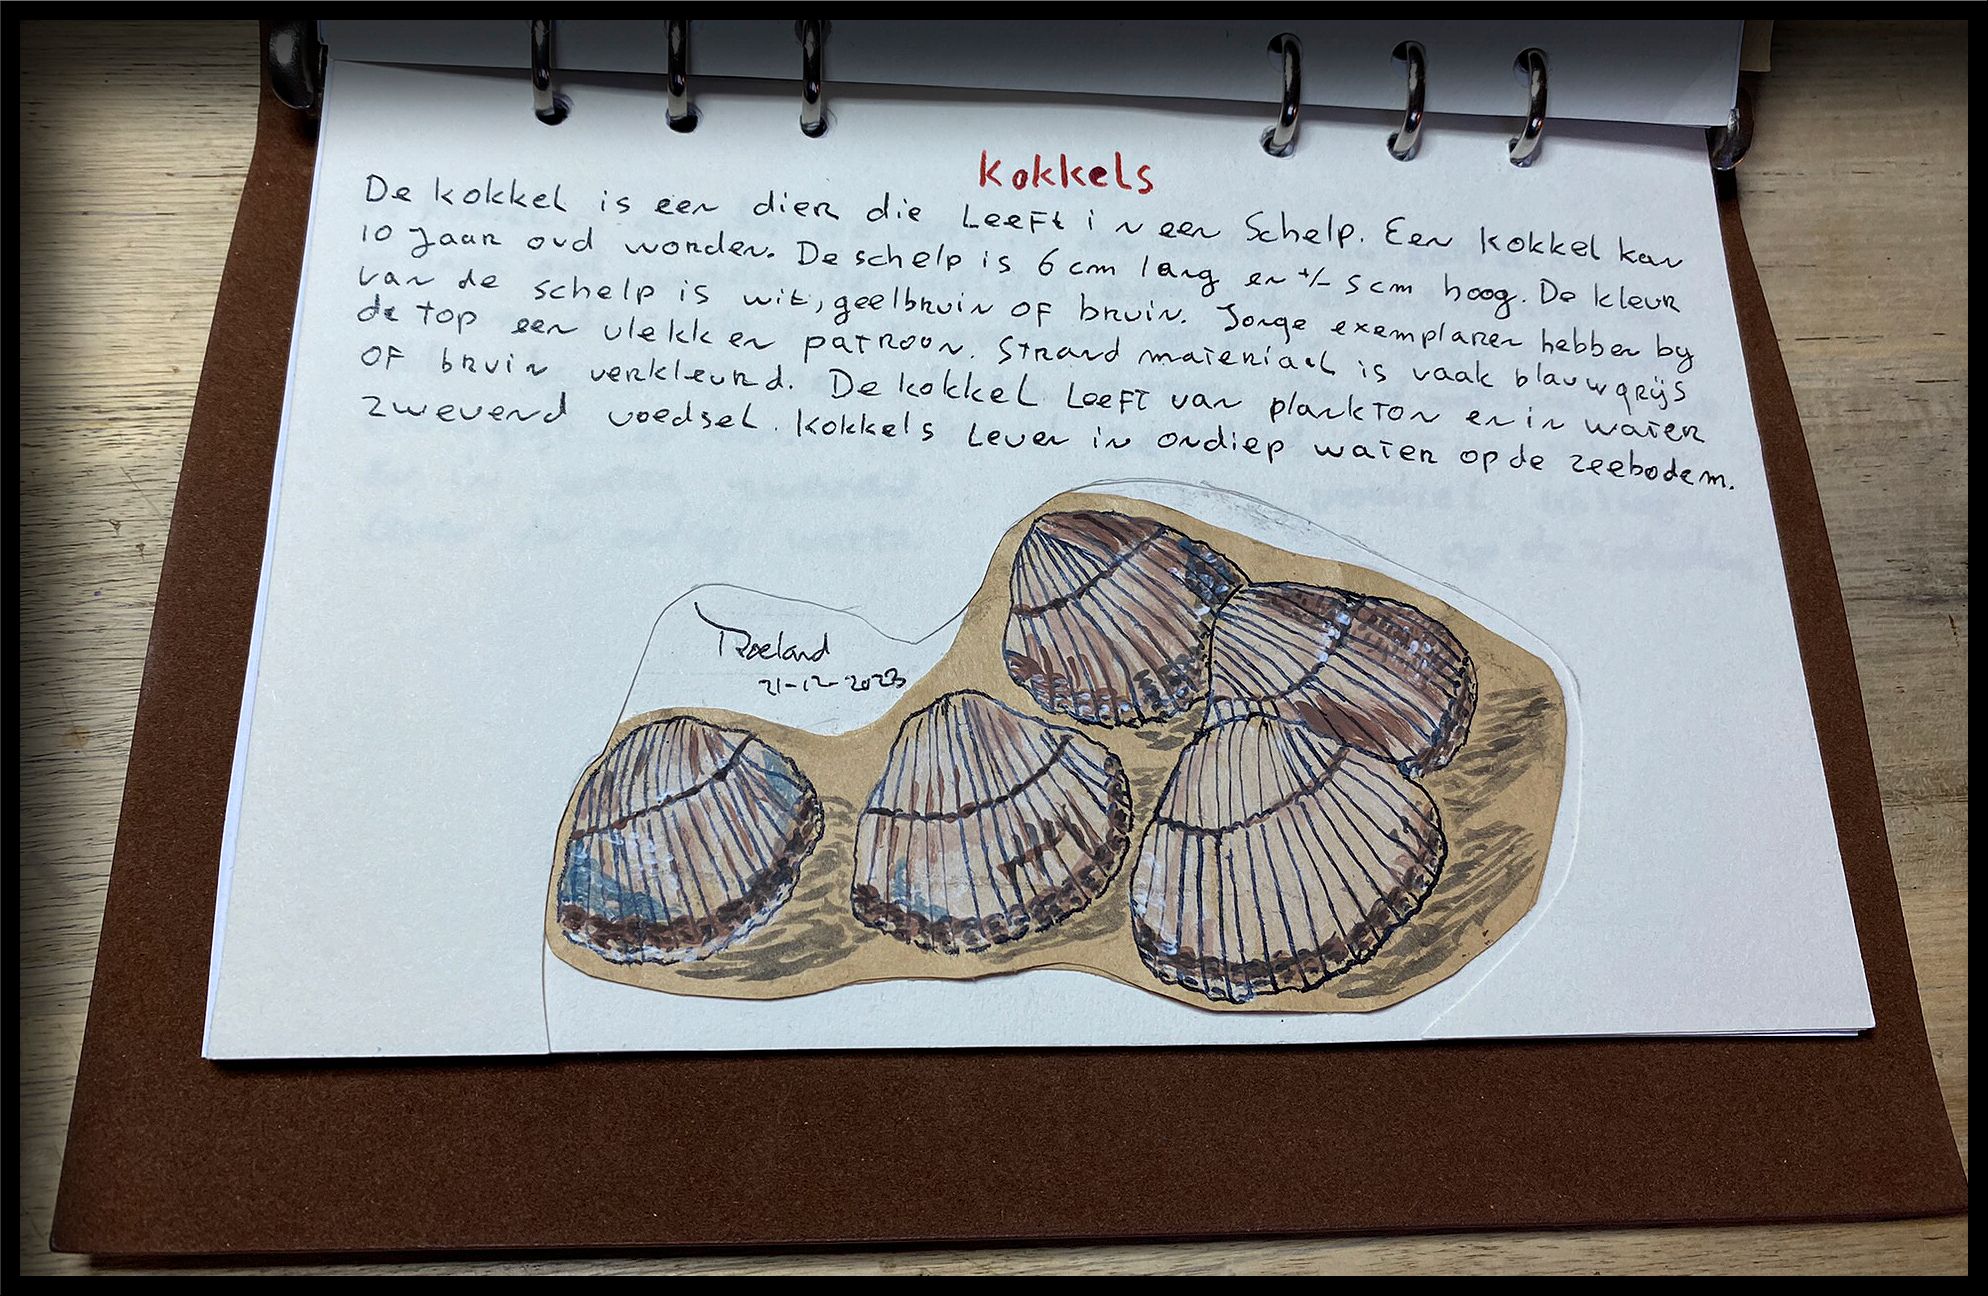 Kokkels
De kokkel is een dier die Leeft in een Schelp. Een kokkel kan
10 Jaar oud worden. De schelp is 6 cm lang en +/- 5 cm hoog. De kleur
van de schelp is wit, geelbruin of bruin. Jonge exemplaren hebben by
de top een vlekken patroon. Strand materiaal is vaak blauwgrijs
of bruin verkleurd. De kokkel Leeft van plankton en in water
zwevend voedsel. Kokkels Leven in ondiep water op de zeebodem.
Roeland
21-12-2023